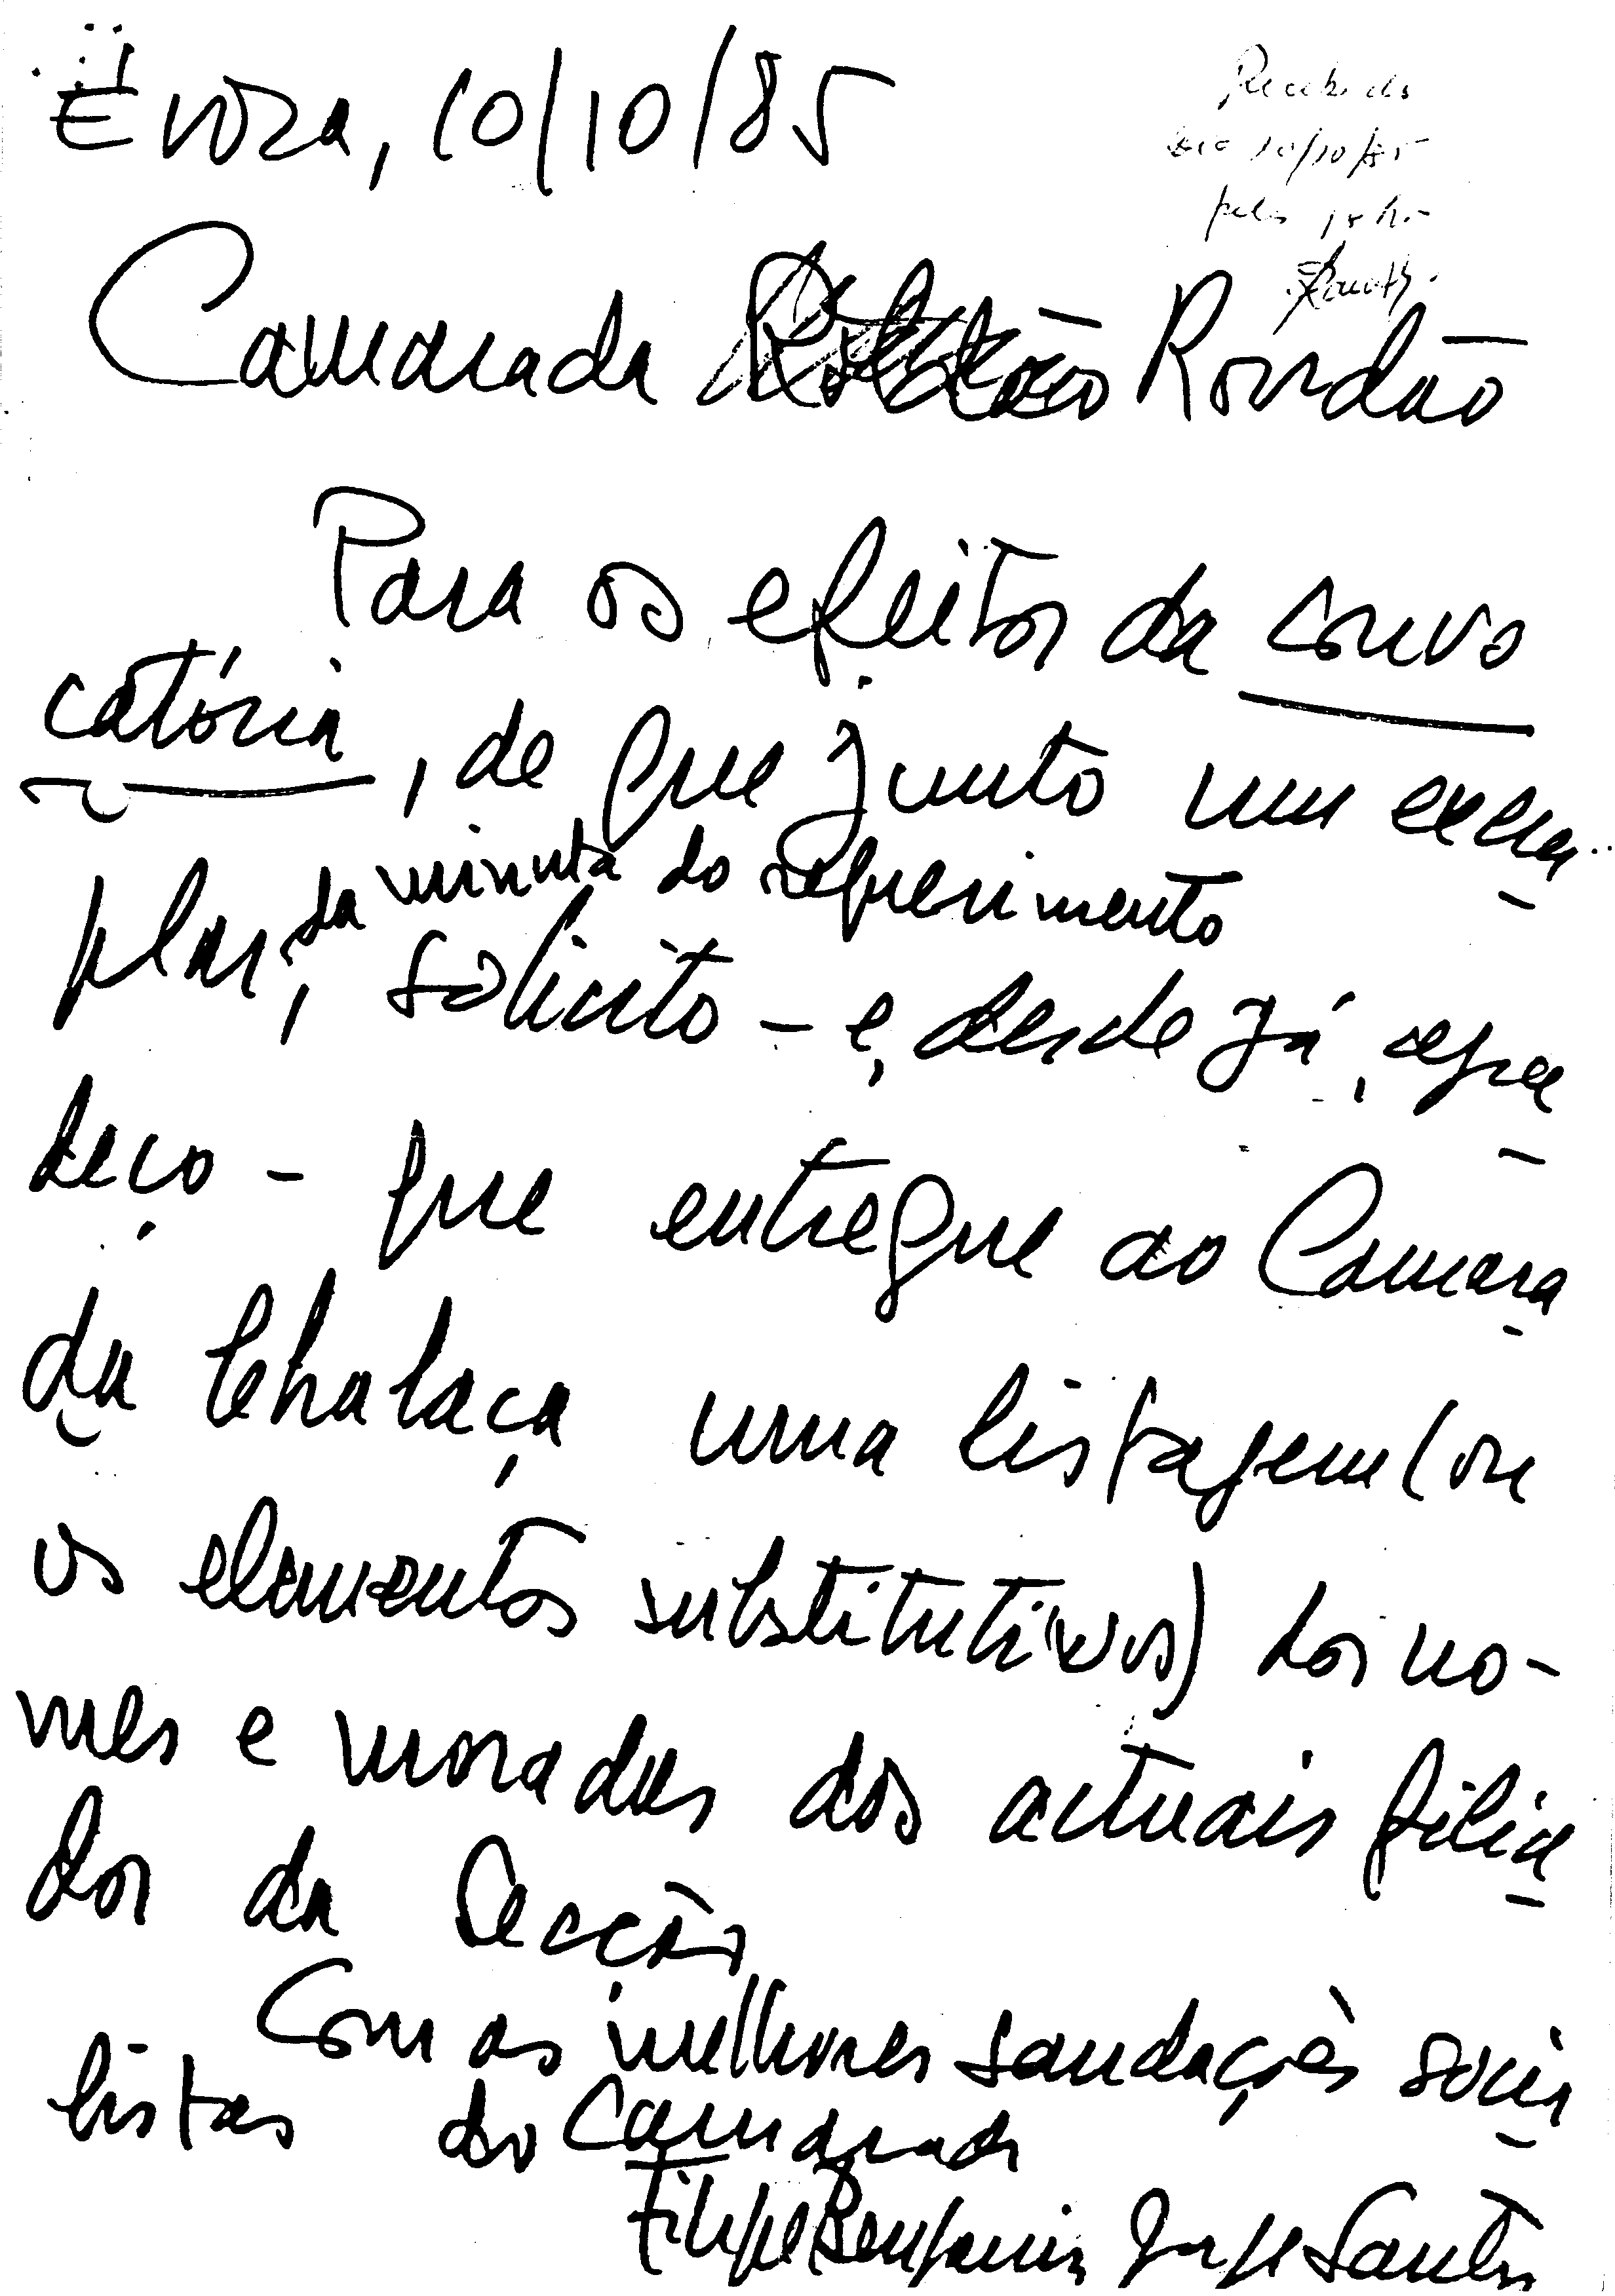 Évora, 10/10/85
Recebido
dia 10/10/85
pelas 18 h.
Camarada Rondão
Para os efeitos da convo
catória, de que junto um exem-
plar, da minuta do requerimento
solicito - e, desde já, agra
deço - que entregue ao Camara
da Chalaça uma listagem (ou
os elementos substitutivos) dos no-
mes e moradas dos actuais filia
dos da Secção
Com as melhores saudações socia
listas do Camarada
Filipe Benjamin Santos